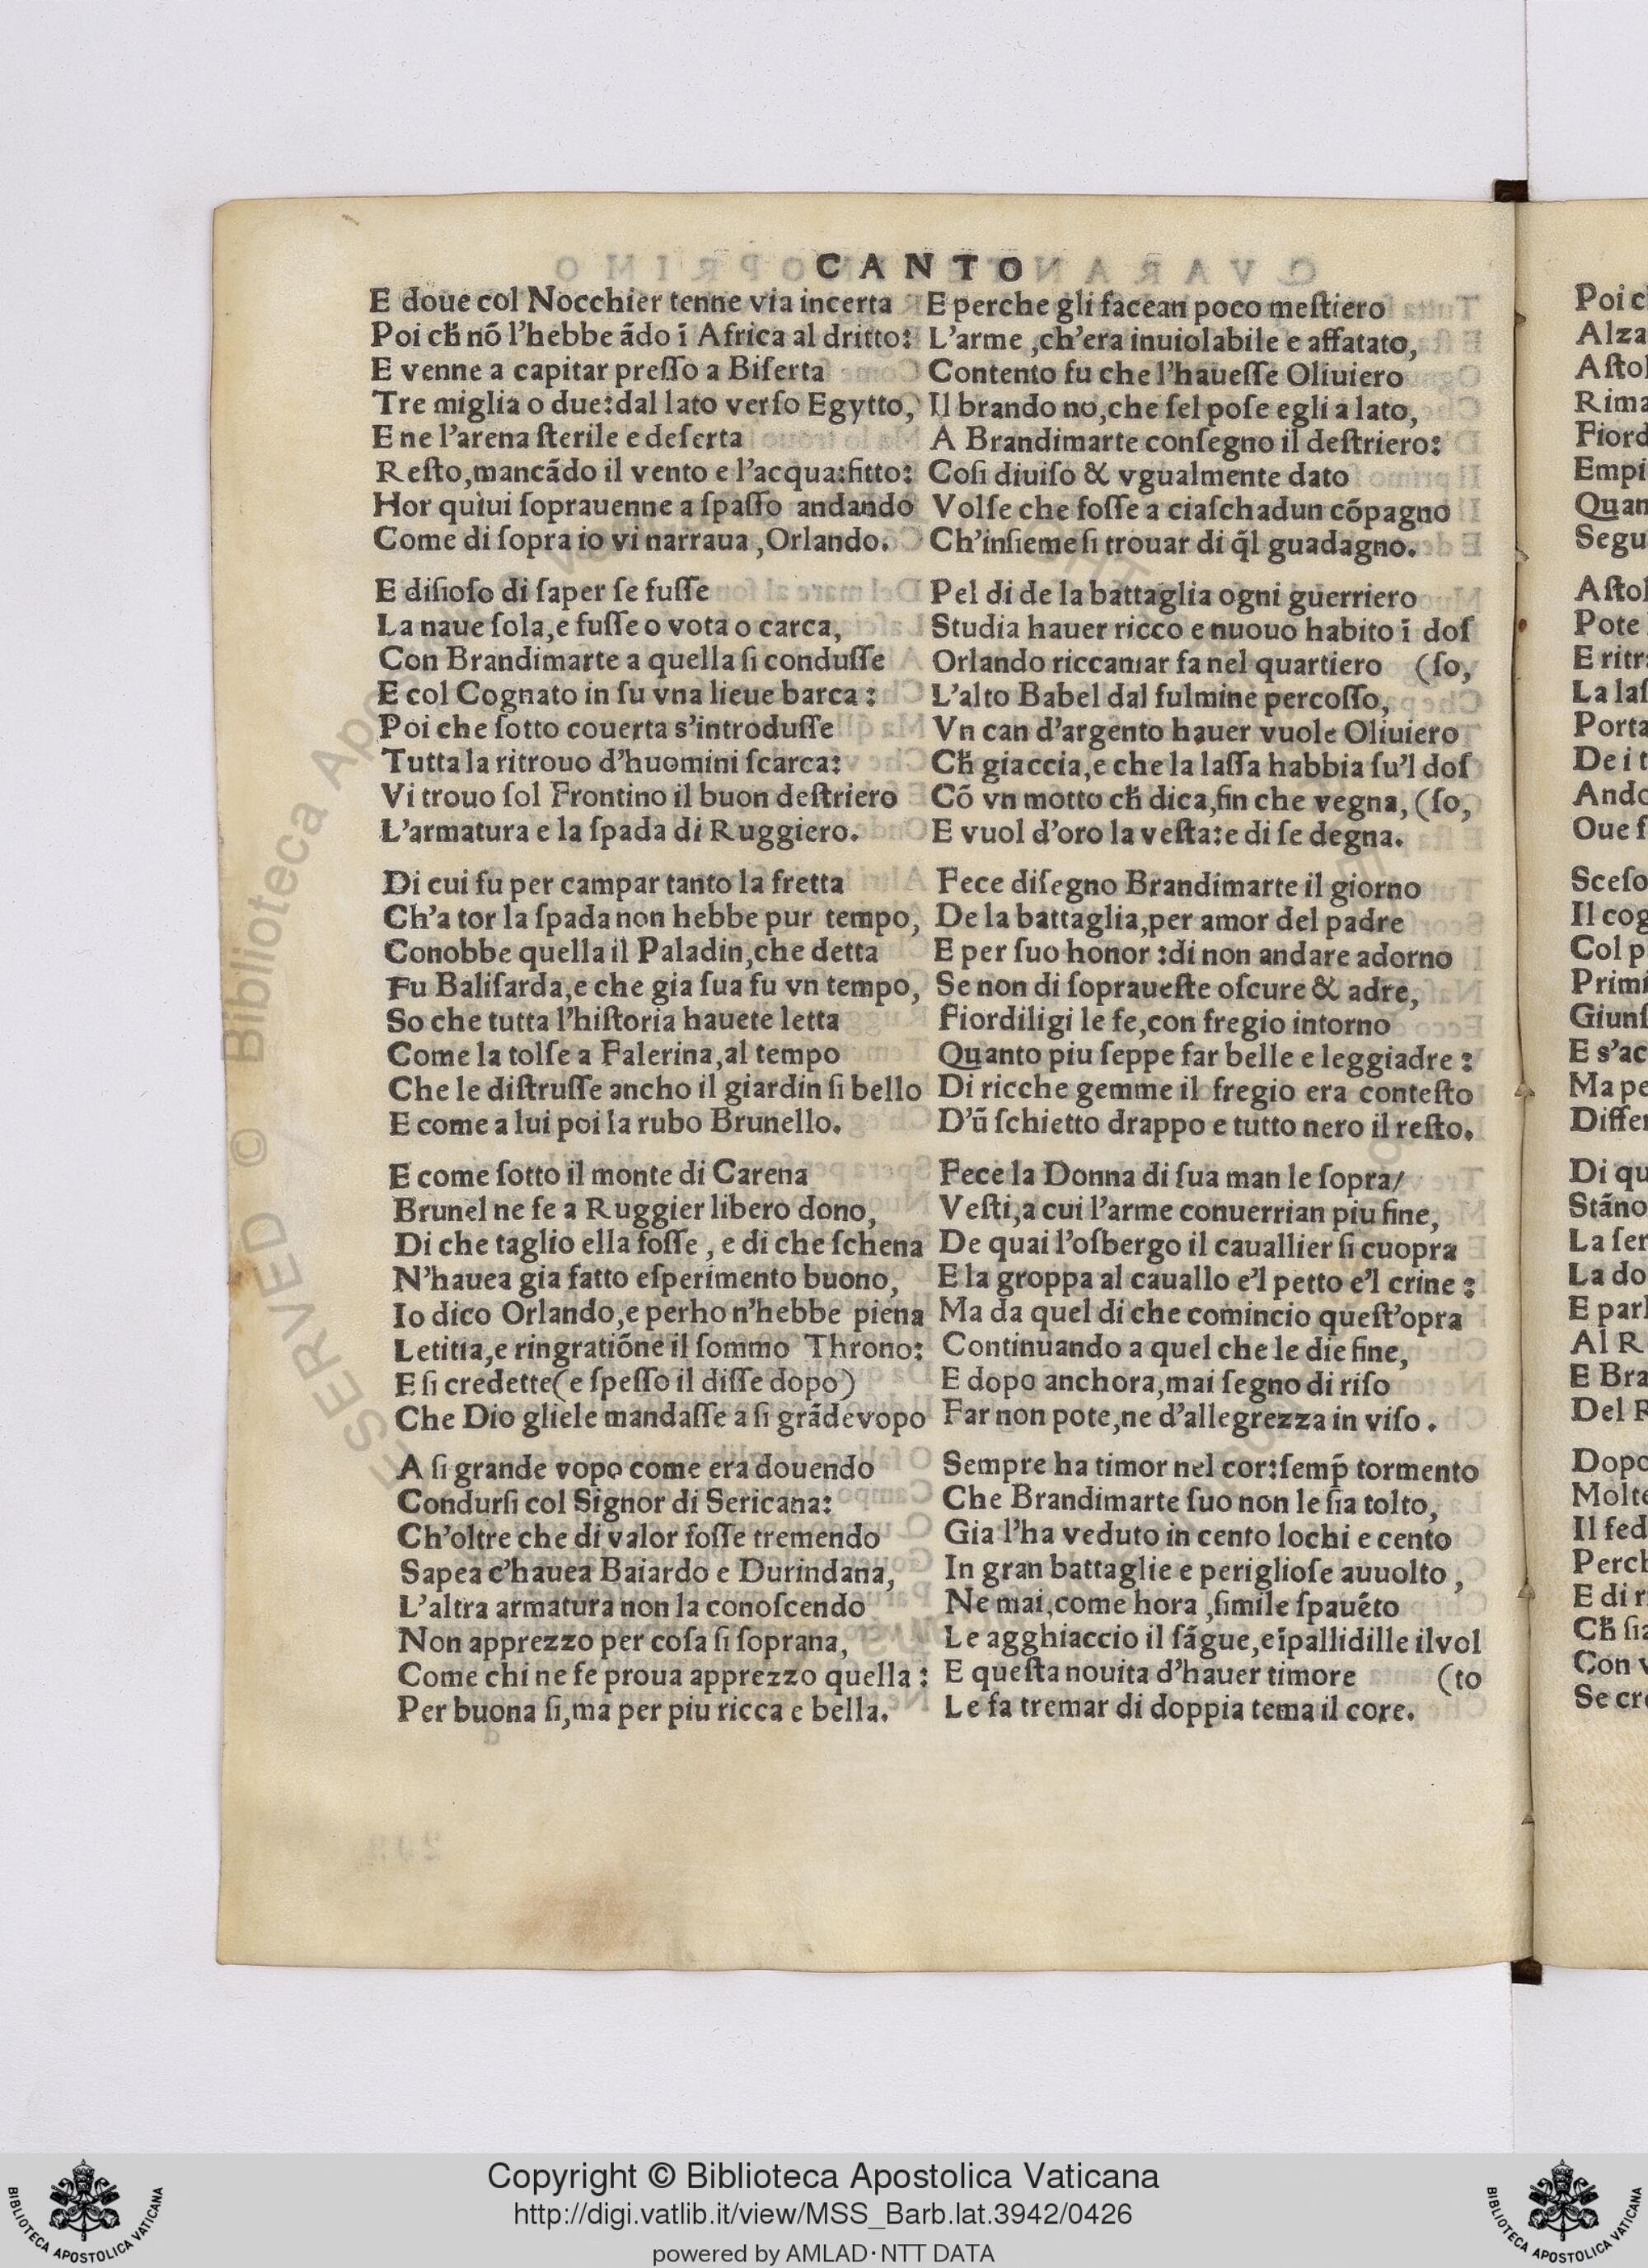 CANTO
E doue col Nocchier tenne via incerta
Poi cħ nõ l'hebbe ãdo ĩ Africa al dritto:
E venne a capitar preſſo a Biſerta
Tre miglia o due:dal lato verſo Egytto,
E ne l'arena ſterile e deſerta
Reſto,mancãdo il vento e l'acqua:fitto:
Hor quiui ſoprauenne a ſpaſſo andando
Come di ſopra io vi narraua ,Orlando.
E diſioſo di ſaper ſe fuſſe
La naue ſola,e fuſſe o vota o carca,
Con Brandimarte a quella ſi conduſſe
E col Cognato in ſu vna lieue barca :
Poi che ſotto couerta s'introduſſe
Tutta la ritrouo d'huomini ſcarca:
Vi trouo ſol Frontino il buon deſtriero
L'armatura e la ſpada di Ruggiero.
Di cui fu per campar tanto la fretta
Ch'a tor la ſpada non hebbe pur tempo,
Conobbe quella il Paladin,che detta
Fu Baliſarda,e che gia ſua fu vn tempo,
So che tutta l'hiſtoria hauete letta
Come la tolſe a Falerina,al tempo
Che le diſtruſſe ancho il giardin ſi bello
E come a lui poi la rubo Brunello.
E come ſotto il monte di Carena
Brunel ne fe a Ruggier libero dono,
Di che taglio ella foſſe , e di che ſchena
N'hauea gia fatto eſperimento buono,
Io dico Orlando,e perho n'hebbe piena
Letitia,e ringratiõne il ſommo Throno:
E ſi credette(e ſpeſſo il diſſe dopo)
Che Dio gliele mandaſſe a ſi grãde vopo
A ſi grande vopo come era douendo
Condurſi col Signor di Sericana:
Ch'oltre che di valor foſſe tremendo
Sapea c'hauea Baiardo e Durindana,
L'altra armatura non la conoſcendo
Non apprezzo per coſa ſi ſoprana,
Come chi ne fe proua apprezzo quella :
Per buona ſi,ma per piu ricca e bella.
E perche gli facean poco meſtiero
L'arme ,ch'era inuiolabile e affatato,
Contento fu che l'haueſſe Oliuiero
Il brando no,che ſel poſe egli a lato,
A Brandimarte conſegno il deſtriero:
Coſi diuiſo & vgualmente dato
Volſe che foſſe a ciaſchadun cõpagno
Ch'inſieme ſi trouar di q̃l guadagno.
Pel di de la battaglia ogni guerriero
Studia hauer ricco e nuouo habito ĩ doſ
Orlando riccamar fa nel quartiero (ſo,
L'alto Babel dal fulmine percoſſo,
Vn can d'argento hauer vuole Oliuiero
Cħ giaccia,e che la laſſa habbia ſu'l doſ
Cõ vn motto cħ dica,fin che vegna, (ſo,
E vuol d'oro la veſta:e di ſe degna.
Fece diſegno Brandimarte il giorno
De la battaglia,per amor del padre
E per ſuo honor :di non andare adorno
Se non di ſoprauеſte oſcure & adre,
Fiordiligi le fe,con fregio intorno
Quanto piu ſeppe far belle e leggiadre :
Di ricche gemme il fregio era conteſto
D'ũ ſchietto drappo e tutto nero il reſto.
Fece la Donna di ſua man le ſopra/
Veſti,a cui l'arme conuerrian piu fine,
De quai l'oſbergo il cauallier ſi cuopra
E la groppa al cauallo e'l petto e'l crine :
Ma da quel di che comincio queſt'opra
Continuando a quel che le die fine,
E dopo anchora,mai ſegno di riſo
Far non pote,ne d'allegrezza in viſo .
Sempre ha timor nel cor:ſemp̃ tormento
Che Brandimarte ſuo non le ſia tolto,
Gia l'ha veduto in cento lochi e cento
In gran battaglie e periglioſe auuolto ,
Ne mai,come hora ,ſimile ſpauẽto
Le agghiaccio il ſãgue,e ĩpallidille il vol
E queſta nouita d'hauer timore (to
Le fa tremar di doppia tema il core.
Poi c
Alza
Aſtol
Rima
Fiord
Empi
Quan
Segu
Aſtol
Pote
E ritr
La laſ
Porta
De i t
Ando
Oue f
Sceſo
Il cog
Col p
Primi
Giunſ
E s'ac
Ma pe
Differ
Di qu
Stãno
La ſer
La do
E parl
Al R
E Bra
Del R
Dopo
Molte
Il fed
Perch
E di r
Cħ ſia
Con v
Se cre
Copyright © Biblioteca Apostolica Vaticana
http://digi.vatlib.it/view/MSS_Barb.lat.3942/0426
powered by AMLAD·NTT DATA
BIBLIOTECA APOSTOLICA VATICANA
BIBLIOTECA APOSTOLICA VATICANA